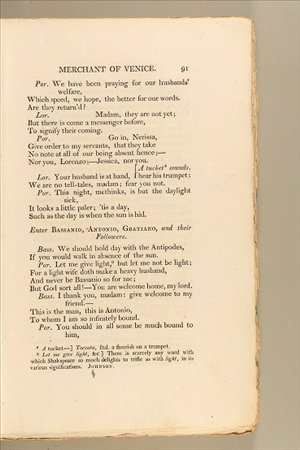 MERCHANT OF VENICE. 91
Por. We have been praying for our husbands'
welfare,
Which speed, we hope, the better for our words.
Are they return'd?
Lor. Madam, they are not yet;
But there is come a messenger before,
To signify their coming.
Por. Go in, Nerissa,
Give order to my servants, that they take
No note at all of our being absent hence;—
Nor you, Lorenzo;—Jessica, nor you.
[A tucket⁸ sounds.
Lor. Your husband is at hand, I hear his trumpet:
We are no tell-tales, madam; fear you not.
Por. This night, methinks, is but the daylight
sick,
It looks a little paler; 'tis a day,
Such as the day is when the sun is hid.
Enter BASSANIO, ANTONIO, GRATIANO, and their
Followers.
Bass. We should hold day with the Antipodes,
If you would walk in absence of the sun.
Por. Let me give light,⁹ but let me not be light;
For a light wife doth make a heavy husband,
And never be Bassanio so for me;
But God sort all!—You are welcome home, my lord.
Bass. I thank you, madam: give welcome to my
friend.—
This is the man, this is Antonio,
To whom I am so infinitely bound.
Por. You should in all sense be much bound to
him,
⁸ A tucket—] Toccata, Ital. a flourish on a trumpet.
⁹ Let me give light, &c.] There is scarcely any word with
which Shakspeare so much delights to trifle as with light, in its
various significations. JOHNSON.